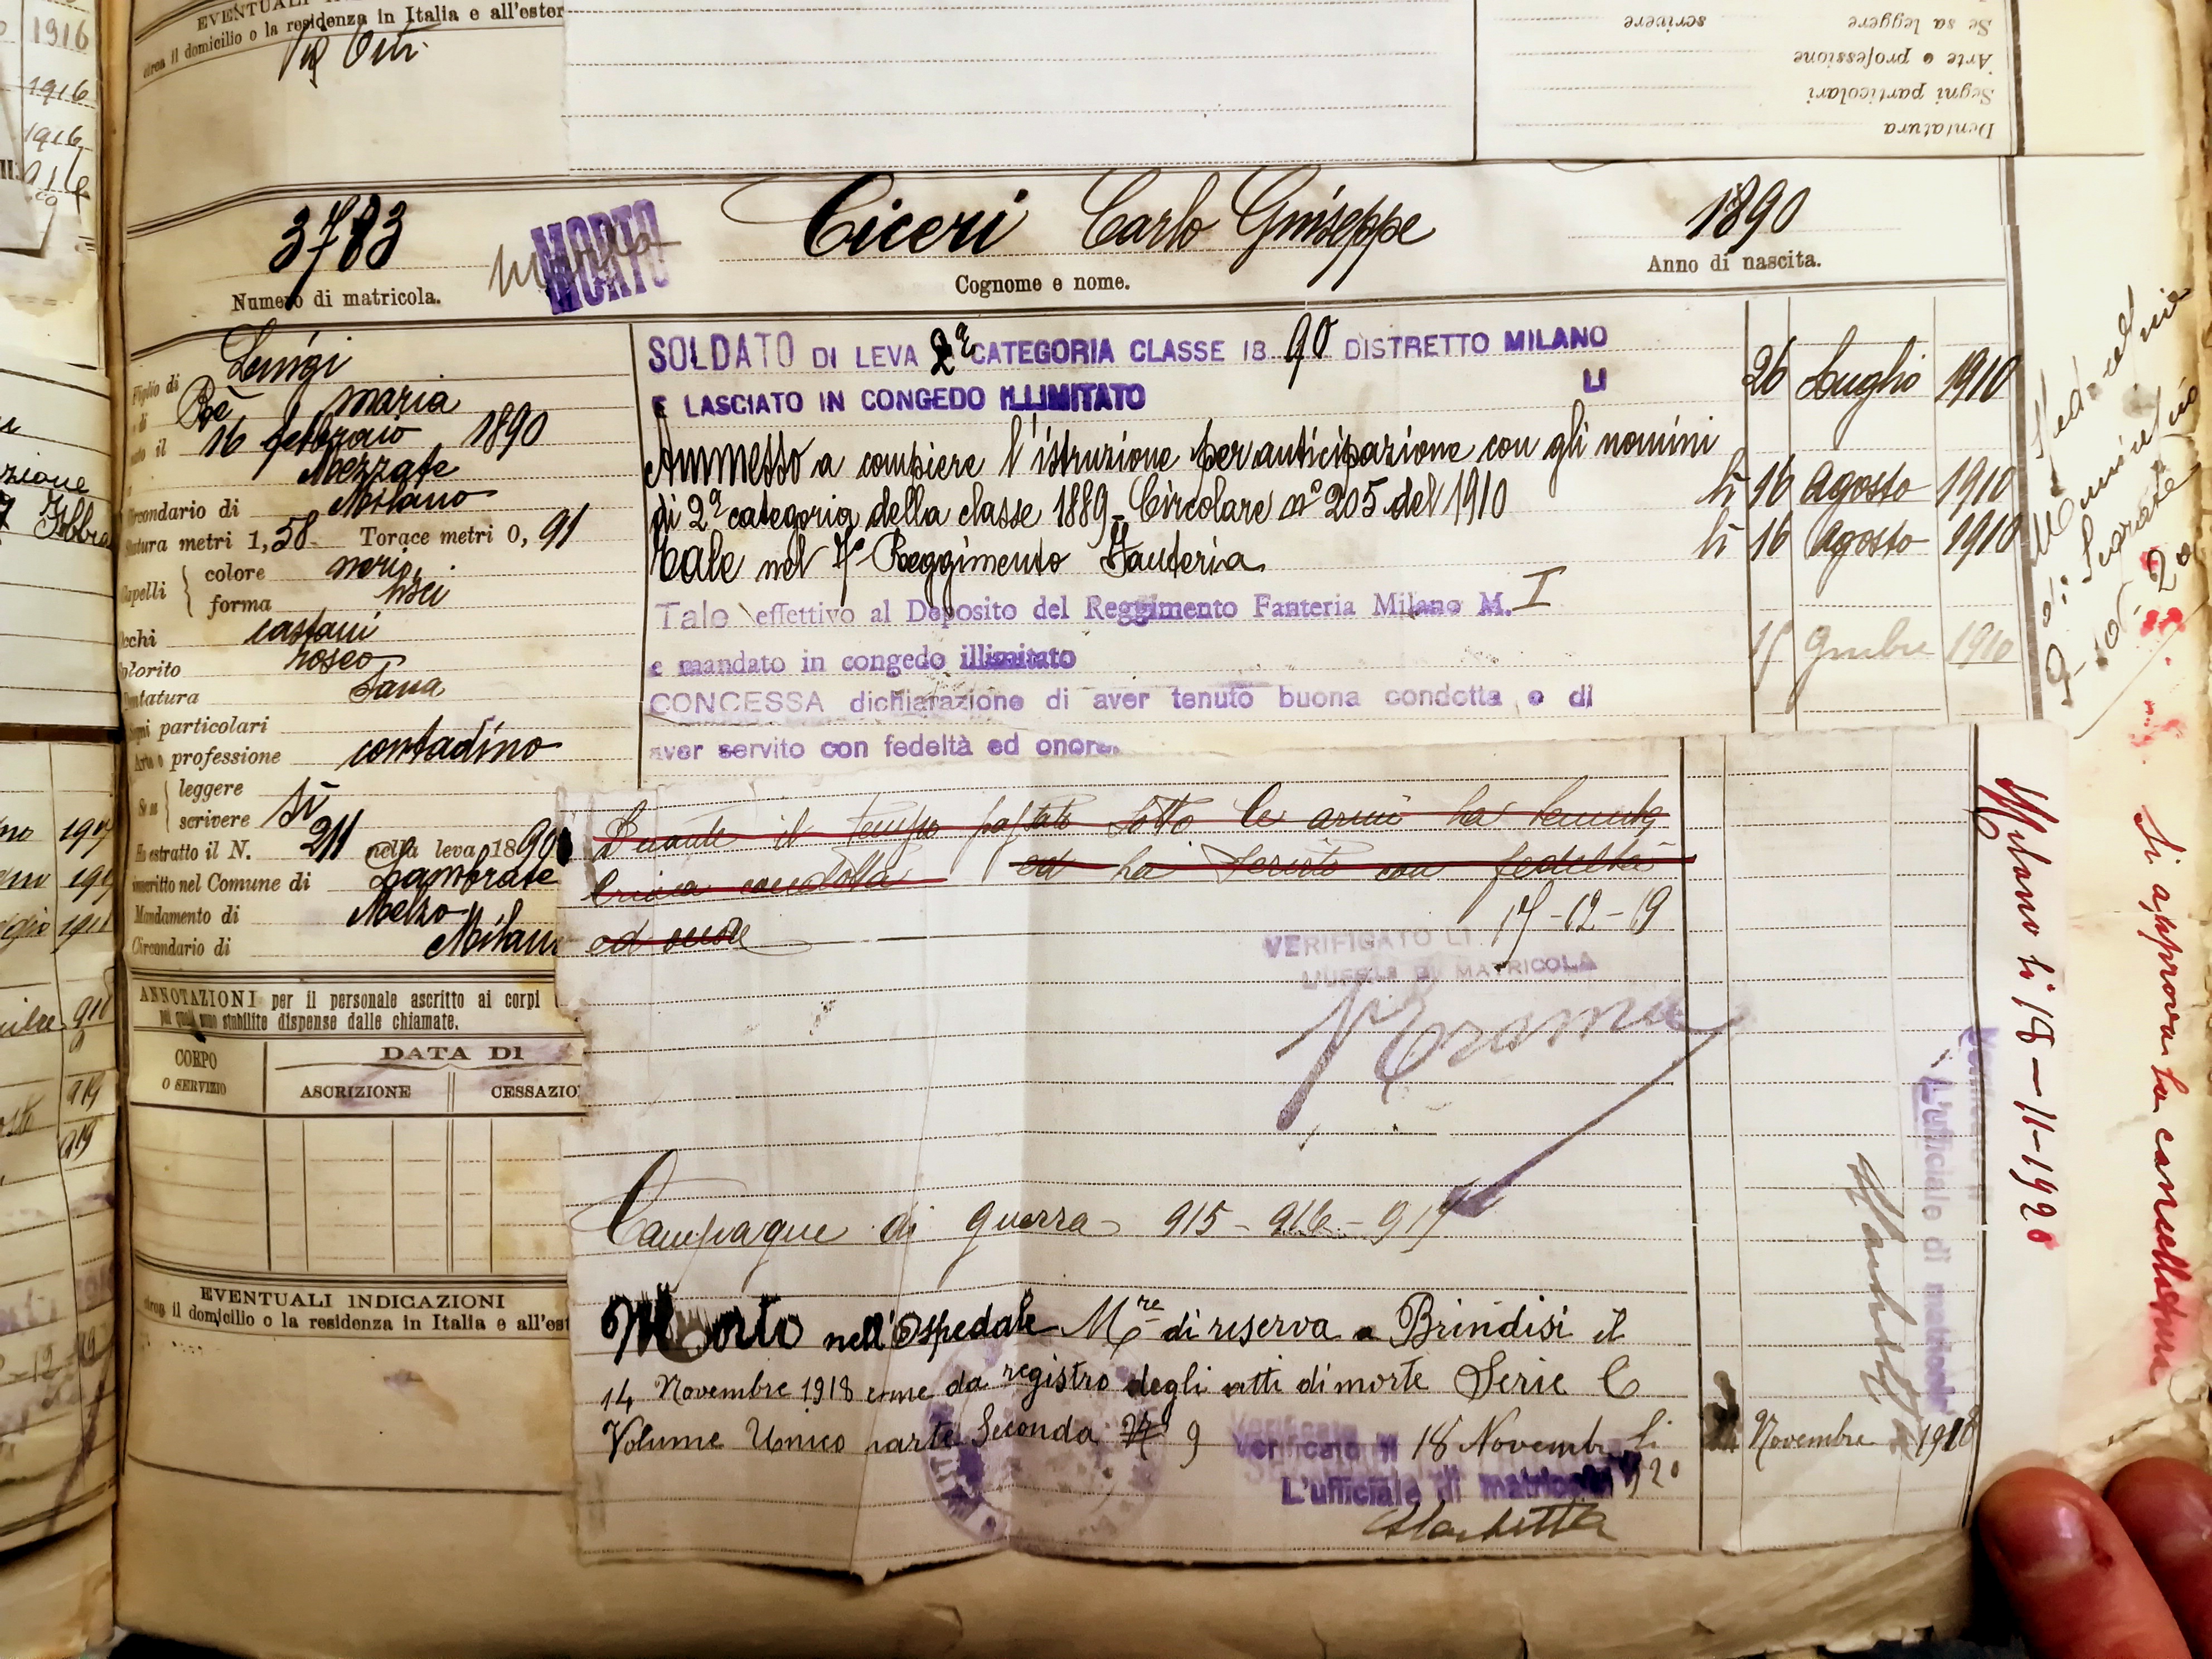 1916
1916
1916
EVENTUALI
circa il domicilio o la residenza in Italia e all'ester
Se sa leggere
scrivere
Arte o professione
Segni particolari
Dentatura
3783
Numero di matricola.
MORTO
MORTO
Ciceri Carlo Giuseppe
Cognome e nome.
1890
Anno di nascita.
Figlio di Luigi
di Rè maria
nato il 16 febbraio 1890
Mezzate
Circondario di Milano
Statura metri 1,58 Torace metri 0,91
Capelli
colore neri
forma lisci
Occhi castani
Colorito roseo
Dentatura Sana
Segni particolari
Arte o professione contadino
Se sa
leggere
scrivere
si
Ha estratto il N. 211 nella leva 1890
inscritto nel Comune di Lambrate
Mandamento di Melzo
Circondario di Milano
ANNOTAZIONI per il personale ascritto ai corpi
pei quali sono stabilite dispense dalle chiamate.
CORPO
O SERVIZIO
DATA DI
ASCRIZIONE
CESSAZIO
EVENTUALI INDICAZIONI
circa il domicilio o la residenza in Italia e all'est
SOLDATO DI LEVA 2ª CATEGORIA CLASSE 18 90 DISTRETTO MILANO
E LASCIATO IN CONGEDO ILLIMITATO LI 26 Luglio 1910
Ammesso a compiere l'istruzione per anticipazione con gli uomini
di 2ª categoria della classe 1889 - Circolare nº 205 del 1910 li 16 Agosto 1910
Tale nel 7º Reggimento Fanteria li 16 Agosto 1910
Tale effettivo al Deposito del Reggimento Fanteria Milano M. I
e mandato in congedo illimitato 15 9mbre 1910
CONCESSA dichiarazione di aver tenuto buona condotta e di
aver servito con fedeltà ed onore
Durante il tempo passato sotto le armi ha tenuto
buona condotta ed ha servito con fedeltà
ed onore
VERIFICATO LI 17-12-19
L'UFF.LE DI MATRICOLA
Campagne di guerra 915-916-917
Morto nell'Ospedale M.re di riserva a Brindisi il
14 Novembre 1918 come da registro degli atti di morte Serie C
Volume Unico parte Seconda Nº 9 li Novembre 1918
Verificato li 18 Novembre 920
L'ufficiale di matricola
di Segrate
9-10-20
Milano li 18-11-1920
Si approva la cancellatura
L'ufficiale di matricola